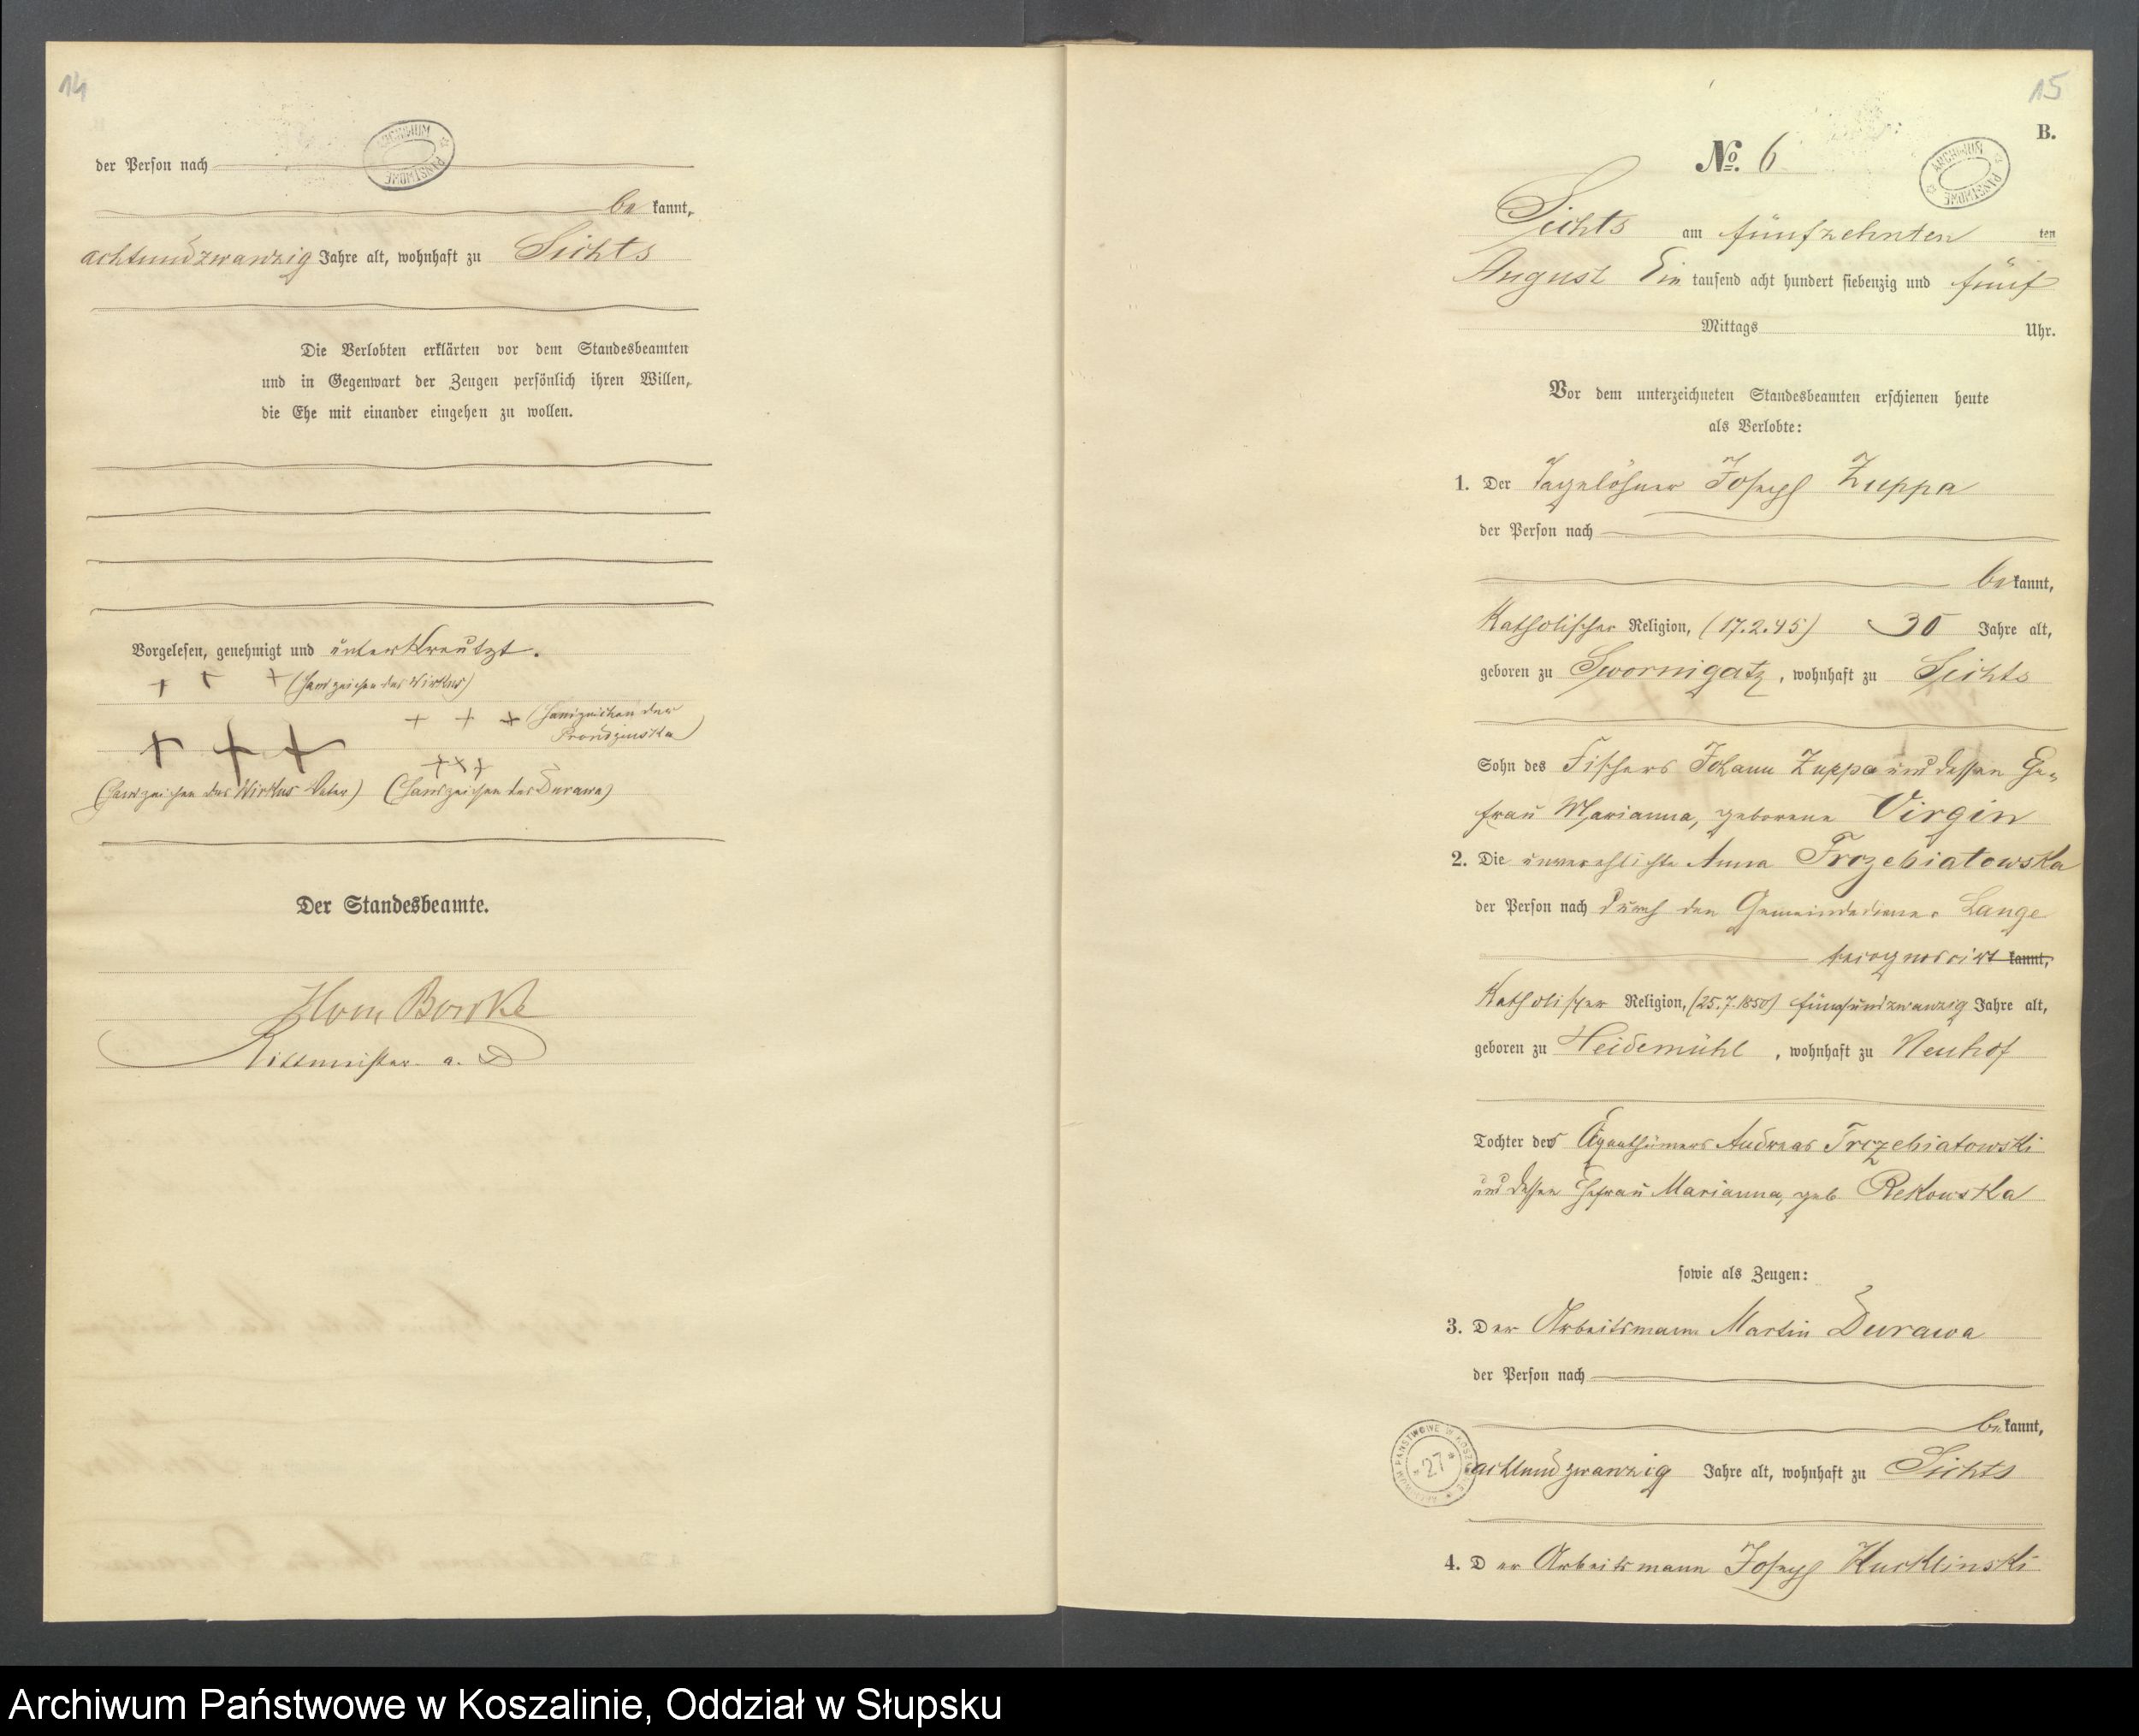 14
ARCHIWUM PAŃSTWOWE
der Person nach
be kannt,
achtundzwanzig Jahre alt, wohnhaft zu Sichts
Die Verlobten erklärten vor dem Standesbeamten
und in Gegenwart der Zeugen persönlich ihren Willen,
die Ehe mit einander eingehen zu wollen.
Vorgelesen, genehmigt und unterkreutzt.
+ + + (Handzeichen des Wirkus)
+ + + (Handzeichen der
Prondzinska)
+ + +
+ + +
(Handzeichen des Wirkus Vater) (Handzeichen des Durawa)
Der Standesbeamte.
Rittmeister a. D
15
B.
No. 6
ARCHIWUM PAŃSTWOWE
Sichts am fünfzehnten ten
August Ein tausend acht hundert siebenzig und fünf
Mittags Uhr.
Vor dem unterzeichneten Standesbeamten erschienen heute
als Verlobte:
1. Der Tagelöhner Joseph Zuppa
der Person nach
be kannt,
Katholischer Religion, (17.2.45) 30 Jahre alt,
geboren zu Swornigatz, wohnhaft zu Sichts
Sohn des Fischers Johann Zuppa und dessen Ehe-
frau Marianna, geborene Virgin
2. Die unverehlichte Anna Trzebiatowska
der Person nach durch den Gemeindediener Lange
recognoscirt kannt,
Katholischer Religion, (25.7.1850) fünfundzwanzig Jahre alt,
geboren zu Heidemühl, wohnhaft zu Neuhof
Tochter des Eigenthümers Andreas Trzebiatowski
und dessen Ehefrau Marianna, geb Rekowska
sowie als Zeugen:
3. Der Arbeitsmann Martin Durawa
der Person nach
be kannt,
27
achtundzwanzig Jahre alt, wohnhaft zu Sichts
4. Der Arbeitsmann Joseph Kucklinski
Archiwum Państwowe w Koszalinie, Oddział w Słupsku